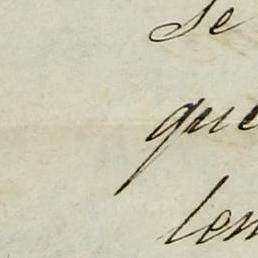 se
que
len